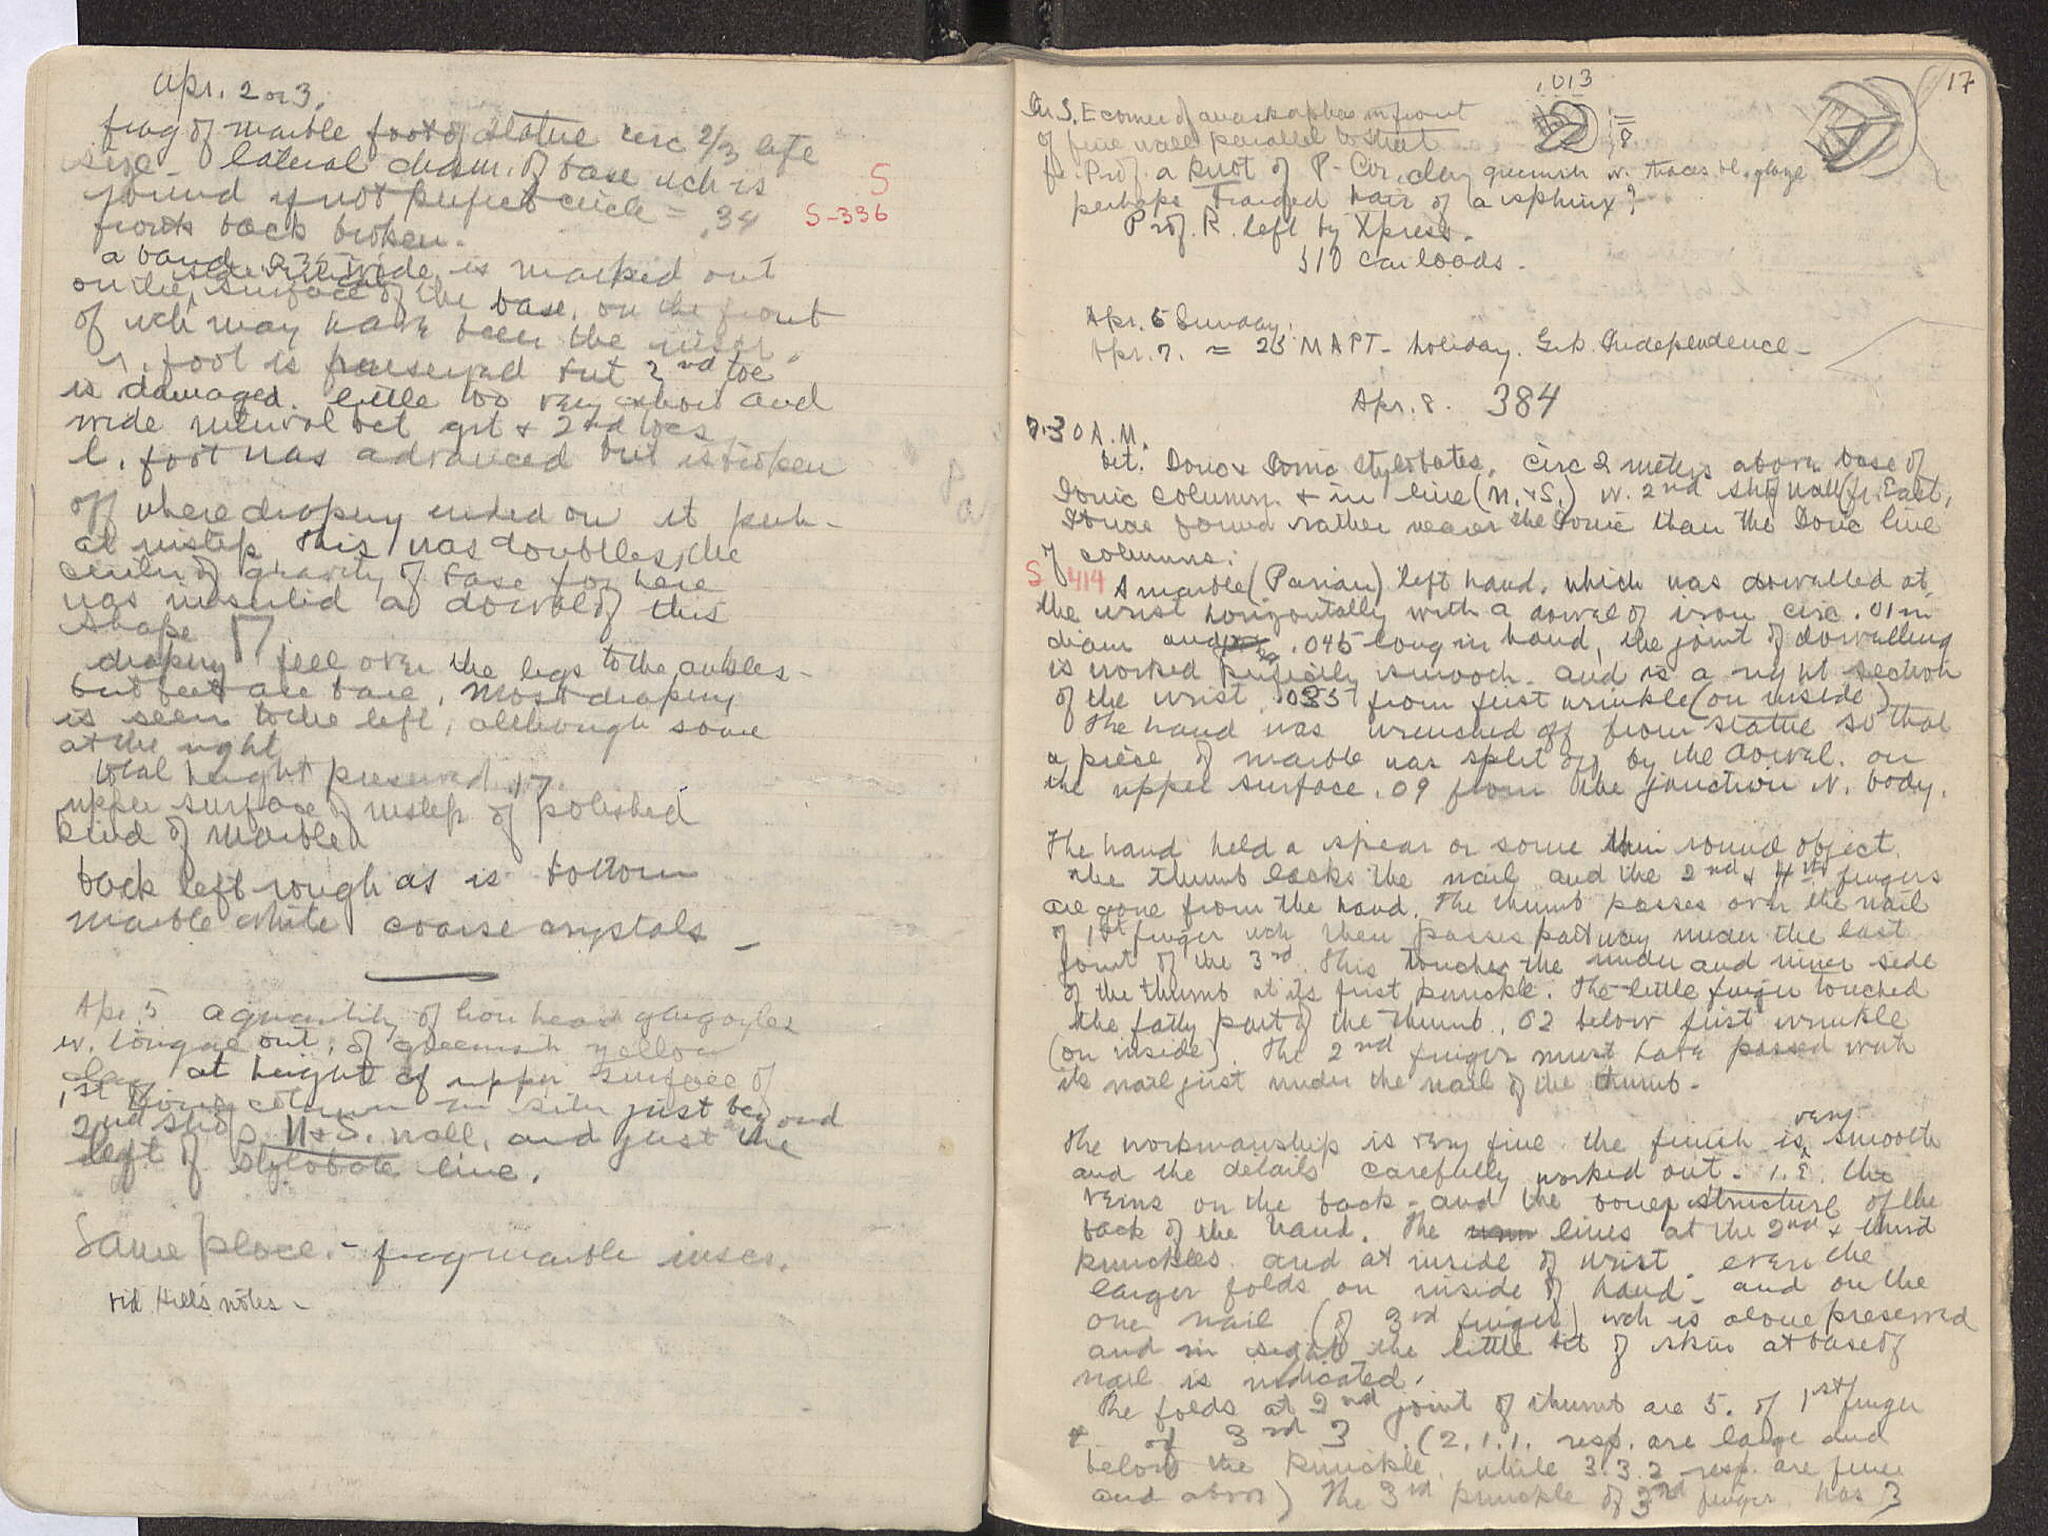 Apr. 2 or 3.
frag of marble foot of statue circ 2/3 life
size - lateral diam. of base wch is
round if not perfect circle = .34
S
S-336
front & back broken.
a band wide is marked out
on the surface of the base, on the front
of wch may have been the inscr.
r. foot is preserved but 2nd toe
is damaged. little toe very short and
wide interval bet grt & 2nd toes
l. foot was advanced but is broken
off where drapery ended on it
at instep. This was doubtless the
center of gravity of base for here
was inserted a dowel of this
shape
drapery fell over the legs to the ankles -
but feet are bare. Most drapery
is seen to the left, although some
at the right
total height preserved .17
upper surface of instep of polished
kind of marble
back left rough as is bottom
marble white coarse crystals -
Apr. 5 a quantity of lion head gargoyles
w. tongue out, of greenish yellow
clay at height of upper surface of
1st Ionic column in situ just beyond
2nd step N & S. wall, and just the
left of stylobate line.
Same place. - frag marble inscr.
vid. Hill's notes -
17
.013
.18
At S.E corner of anaskaphes in front
of fine wall parallel to that
fr. Prof. a knot of P-Cor. clay greenish w. traces bl. glaze
perhaps braided hair of a sphinx?
Prof. R. left by Xpress.
310 car loads.
Apr. 6 Sunday.
Apr. 7. = 25 ΜΑΡΤ - holiday. Grk. Independence -
Apr. 8. 384
7.30 A.M.
bet. Doric & Ionic stylobates. circ 2 meters above base of
Ionic column & in line (N. & S.) w. 2nd step wall fr. East,
& was found rather nearer the Ionic than the Doric line
of columns:
S 414 A marble (Parian) left hand. which was dowelled at
the wrist horizontally with a dowel of iron circ .01 m
diam and .045 long in hand, the joint of dowelling
is worked perfectly smooth - and is a right section
of the wrist .035 from first wrinkle (on inside)
The hand was wrenched off from statue so that
a piece of marble was split off by the dowel. on
the upper surface .09 from the junction w. body.
The hand held a spear or some thin round object.
The thumb lacks the nail and the 2nd & 4th fingers
are gone from the hand. The thumb passes over the nail
of 1st finger wch then passes part way under the last
joint of the 3rd. This touches the under and inner side
of the thumb at its first knuckle. The little finger touched
the fatty part of the thumb .02 below first wrinkle
(on inside). The 2nd finger must have passed with
its nail just under the nail of the thumb -
The workmanship is very fine. the finish is very smooth
and the details carefully worked out - i.e. the
veins on the back - and the boney structure of the
back of the hand. The lines at the 2nd & third
knuckles and at inside of wrist even the
larger folds on inside of hand - and on the
one nail (of 3rd finger) wch is alone preserved
and in sight the little bit of skin at base of
nail is indicated.
The folds at 2nd joint of thumb are 5. of 1st finger
of 3rd 3 . (2.1.1. resp. are large and
below the knuckle. while 3.3.2 resp. are finer
and above) The 3rd knuckle of 3rd finger has 3